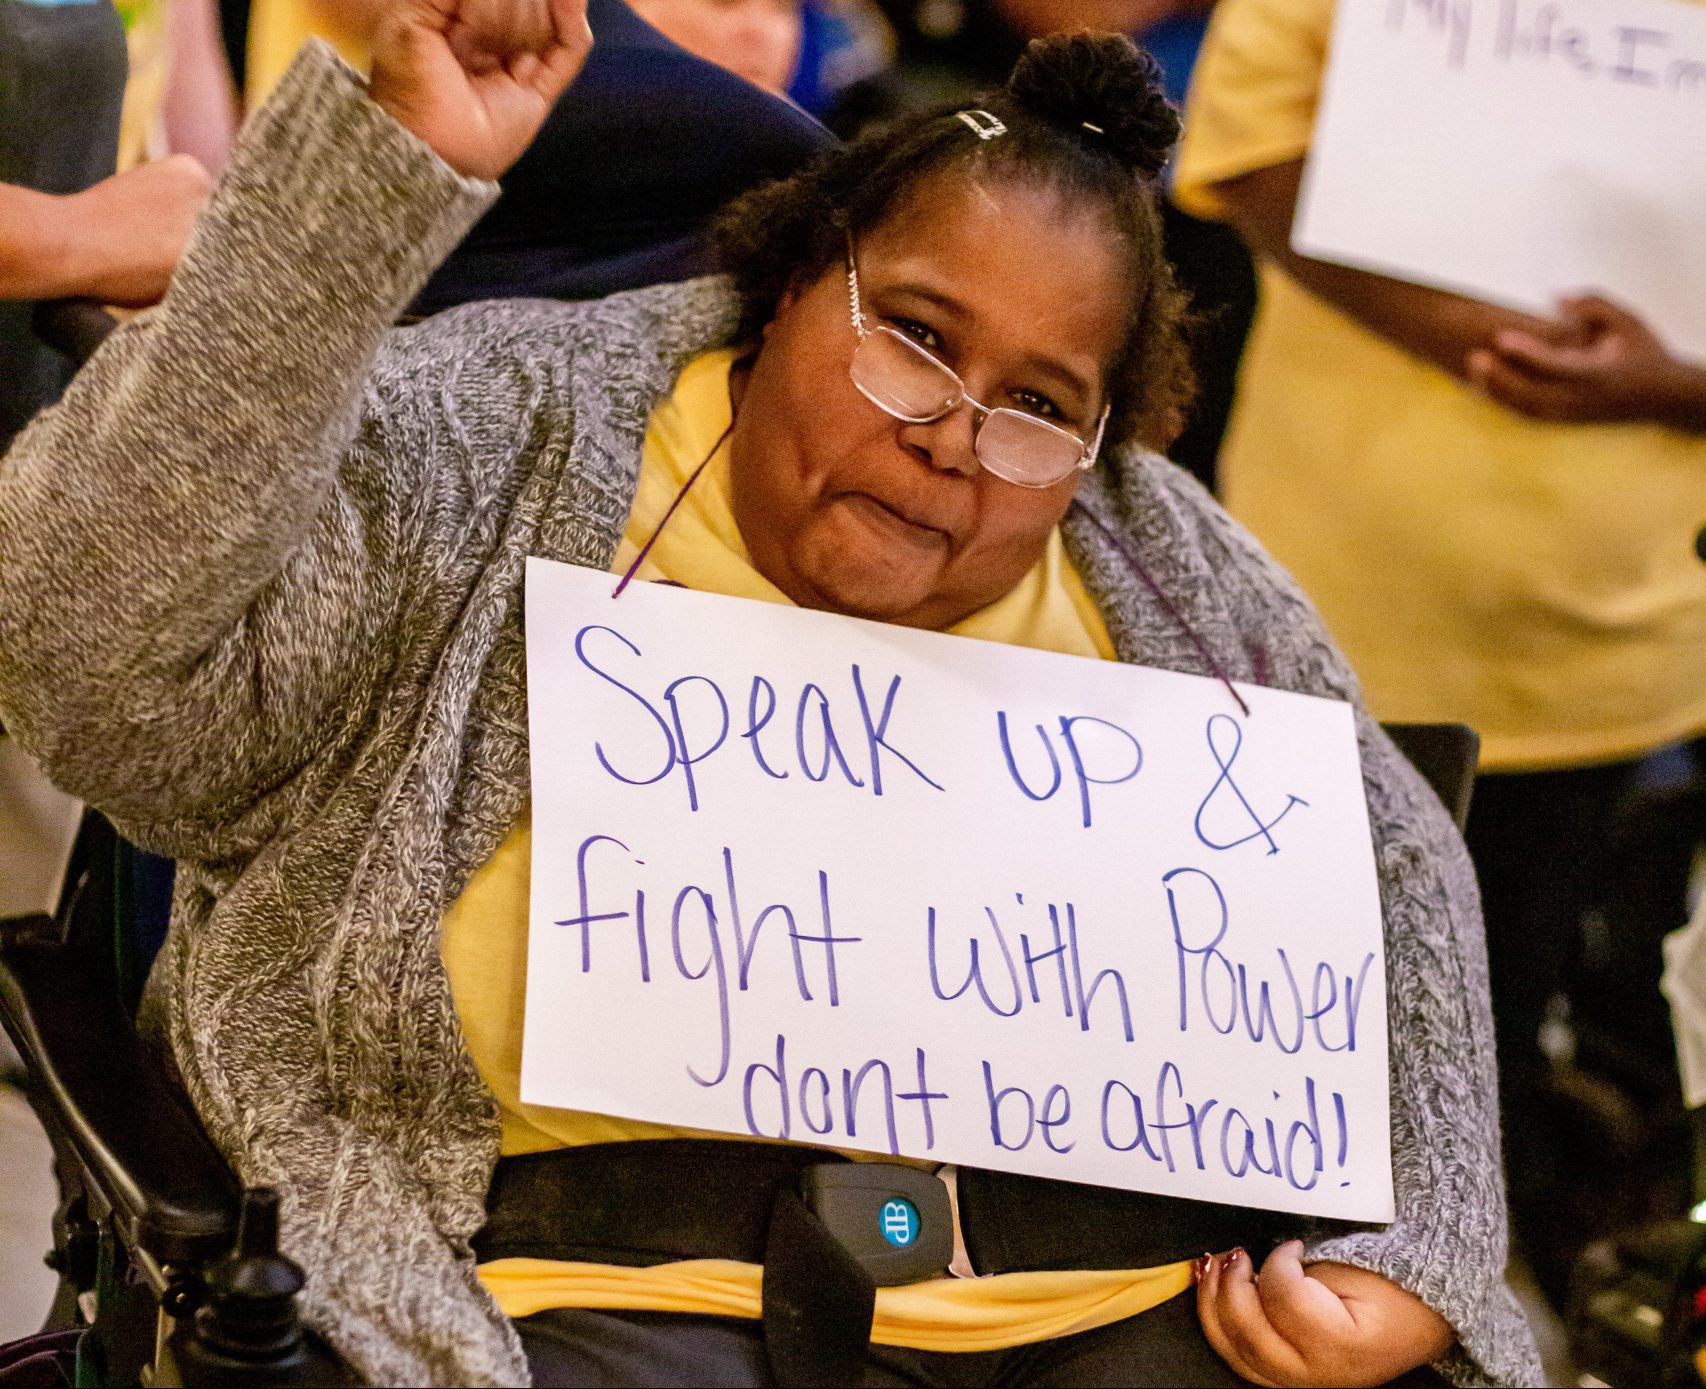 My life Im
Speak up &
fight with Power
dont be afraid!